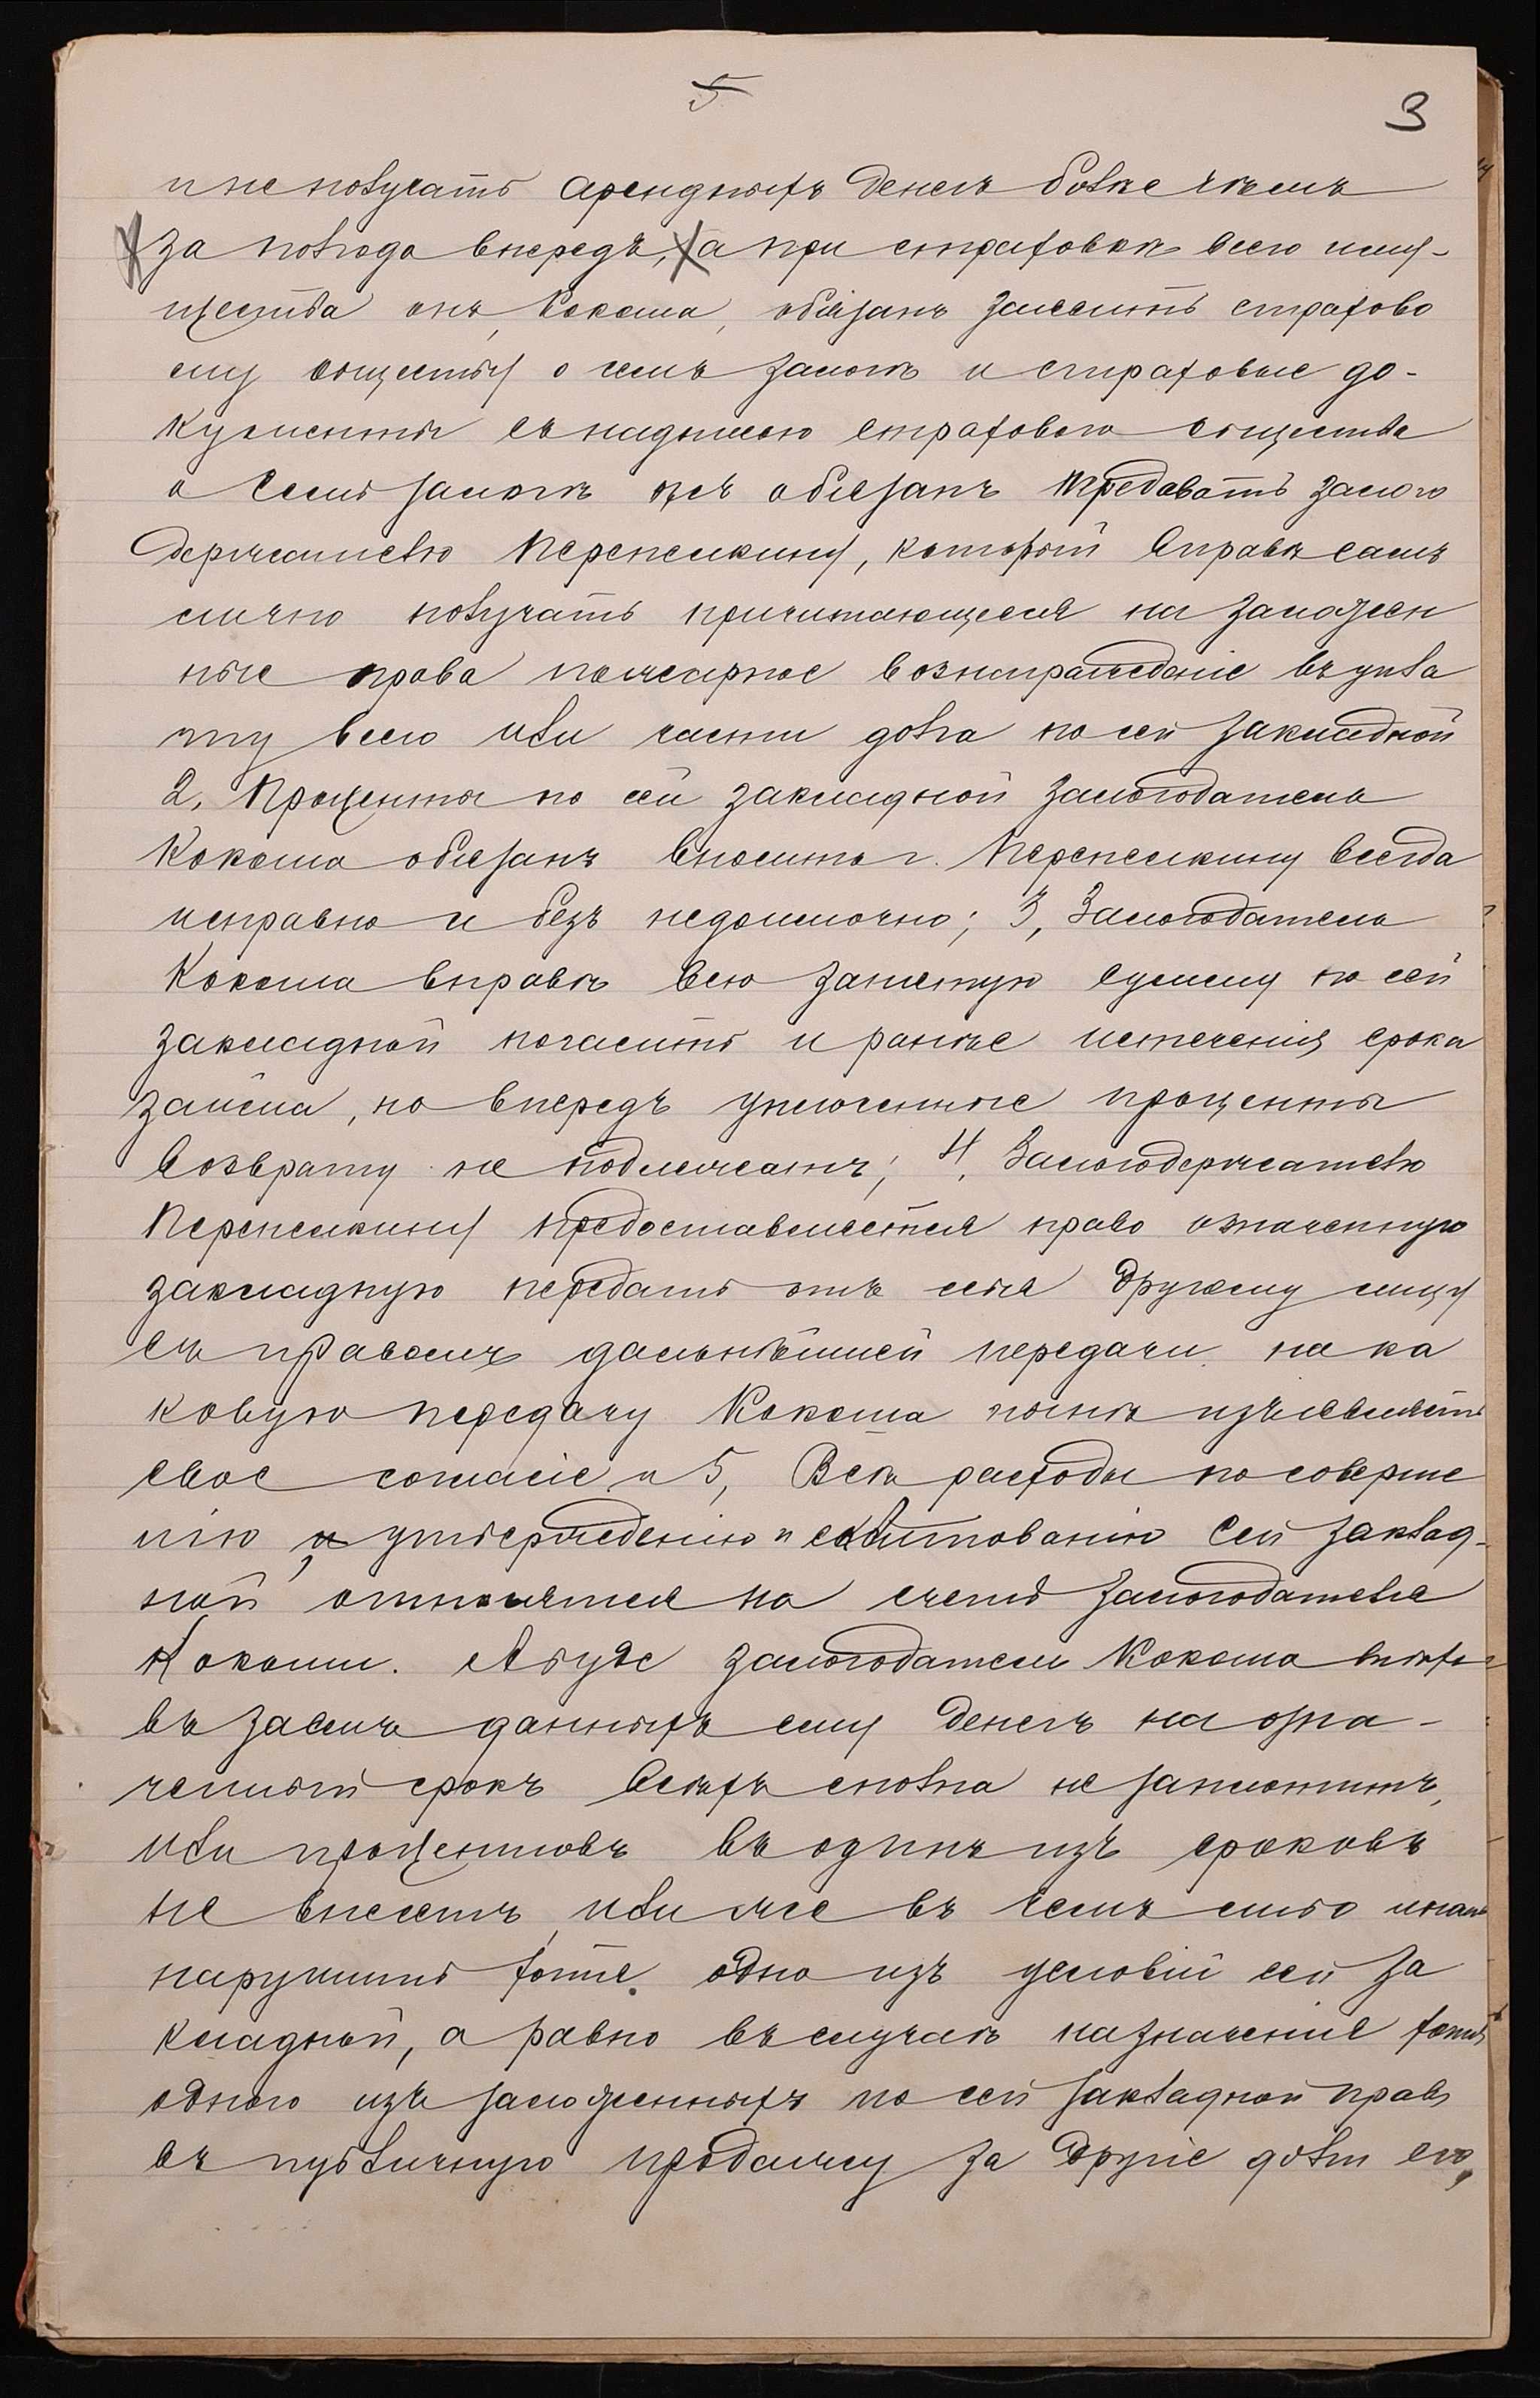 5
3
и не получать арендныхъ денегъ болѣе чѣмъ
за полгода впередъ, а при страховкѣ всего иму-
щества онъ, Кокоша, обязанъ заявить страхово
му обществу о семъ залогѣ и страховые до-
кументы съ надписью страхового общества
о семъ залогѣ онъ обязанъ предавать залого
держателю Перепелкину, который вправѣ самъ
лично получать причитающееся на заложен
ные права пожарное вознагражденіе въ упла
ту всего или части долга по сей закладной
2, Проценты по сей закладной залогодатель
Кокоша обязанъ вносить г. Перепелкину всегда
исправно и безъ недоимочно; 3, Залогодатель
Кокоша вправѣ всю занятую сумму по сей
закладной погасить и ранѣе истеченія срока
займа, но впередъ уплоченные проценты
возврату не подлежатъ; 4, Залогодержателю
Перепелкину предоставляется право означенную
закладную передать отъ себя другому лицу
съ правомъ дальнѣйшей передачи на ка
ковую передачу Кокоша нынѣ изъявляетъ
свое согласіе и 5, Всѣ расходы по соверше
нію, утвержденію и сквитованію сей заклад-
ной относятся на счетъ залогодателя
Кокоши. А буде залогодатель Кокоша
въ заемъ данныхъ ему денегъ на озна-
ченный срокъ всѣхъ сполна не заплотитъ,
или процентовъ въ одинъ изъ сроковъ
не внесетъ, или же въ чемъ либо
нарушитъ хотя одно изъ условій сей за
кладной, а равно въ случаѣ назначенія хотя
одного изъ заложенныхъ по сей закладной правъ
въ публичную продажу за другіе долги его,